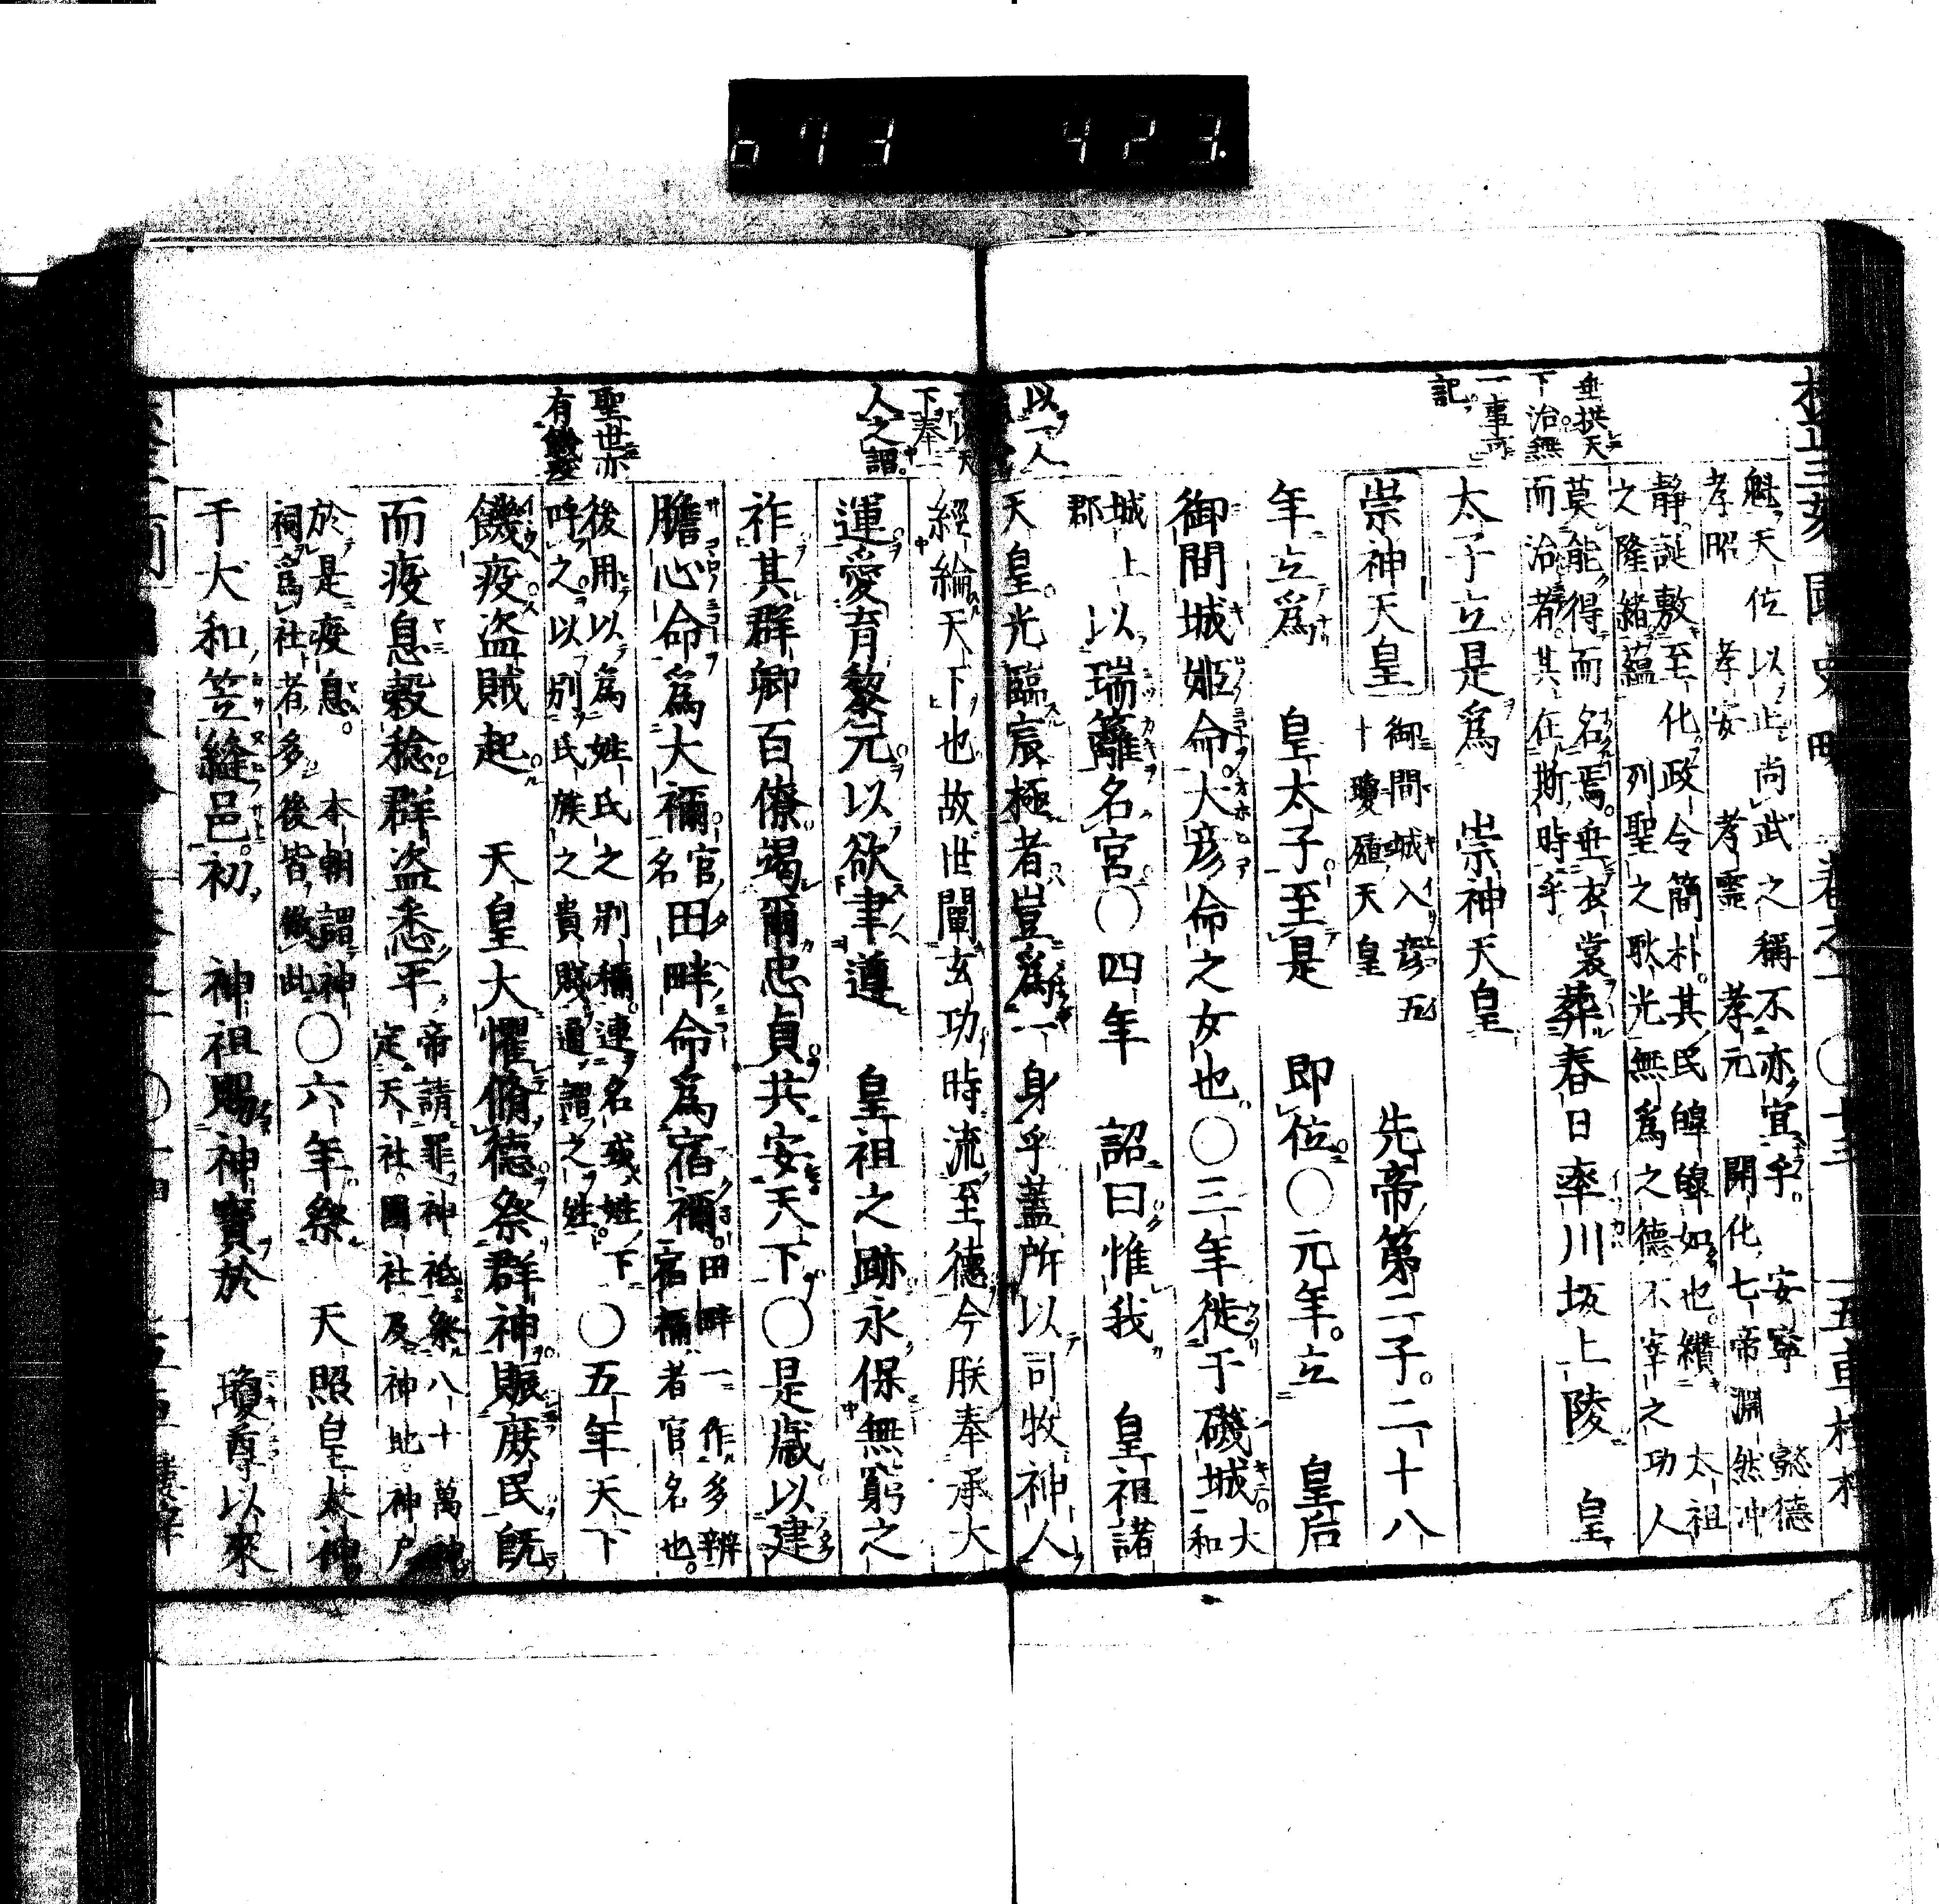 673 423.
垂拱天
下治無
一事可
記
魁天位以止尚武之稱不亦宜乎 安寧 懿德
孝昭 孝安 孝靈 孝元 開化七帝淵然沖
靜誕敷至化政令簡朴其民皥皥如也纘 太祖
之隆緒蘊 列聖之耿光無爲之德不宰之功人
莫能得而名焉垂衣裳
而治者其在斯時乎
葬春日率川坂上陵 皇
太子立是爲 崇神天皇
崇神天皇 御間城入彥五
十瓊殖天皇 先帝第二子二十八
年立爲 皇太子至是 即位〇元年立 皇后
御間城姬命大彥命之女也〇三年徙于磯城大
和
城上
郡
以瑞籬名宮〇四年 詔曰惟我 皇祖諸
以一人
天皇光臨宸極者豈爲一身乎蓋所以司牧神人
下奉一
人之謂
經綸天下也故世闡玄功時流至德今朕奉承大
運愛育黎元以欲聿遵 皇祖之跡永保無窮之
祚其群卿百僚竭爾忠貞共安天下〇是歲以建
膽心命爲大禰官
名
田畔命爲宿禰田畔一作多辨
宿禰者官名也
聖世亦
後用以爲姓氏之別稱連名或姓下
呼之以別氏族之貴賤通謂之姓
〇五年天下
饑疫盜賊起 天皇大懼脩德祭群神賑庶民既
而疫息穀稔群盜悉平帝請罪神祇祭八十萬神
定天社國社及神地神戶
於是疫息 本朝謂神
祠爲社者多後皆倣此
〇六年祭 天照皇太神
于大和笠縫邑初 神祖賜神寶於 瓊尊以來